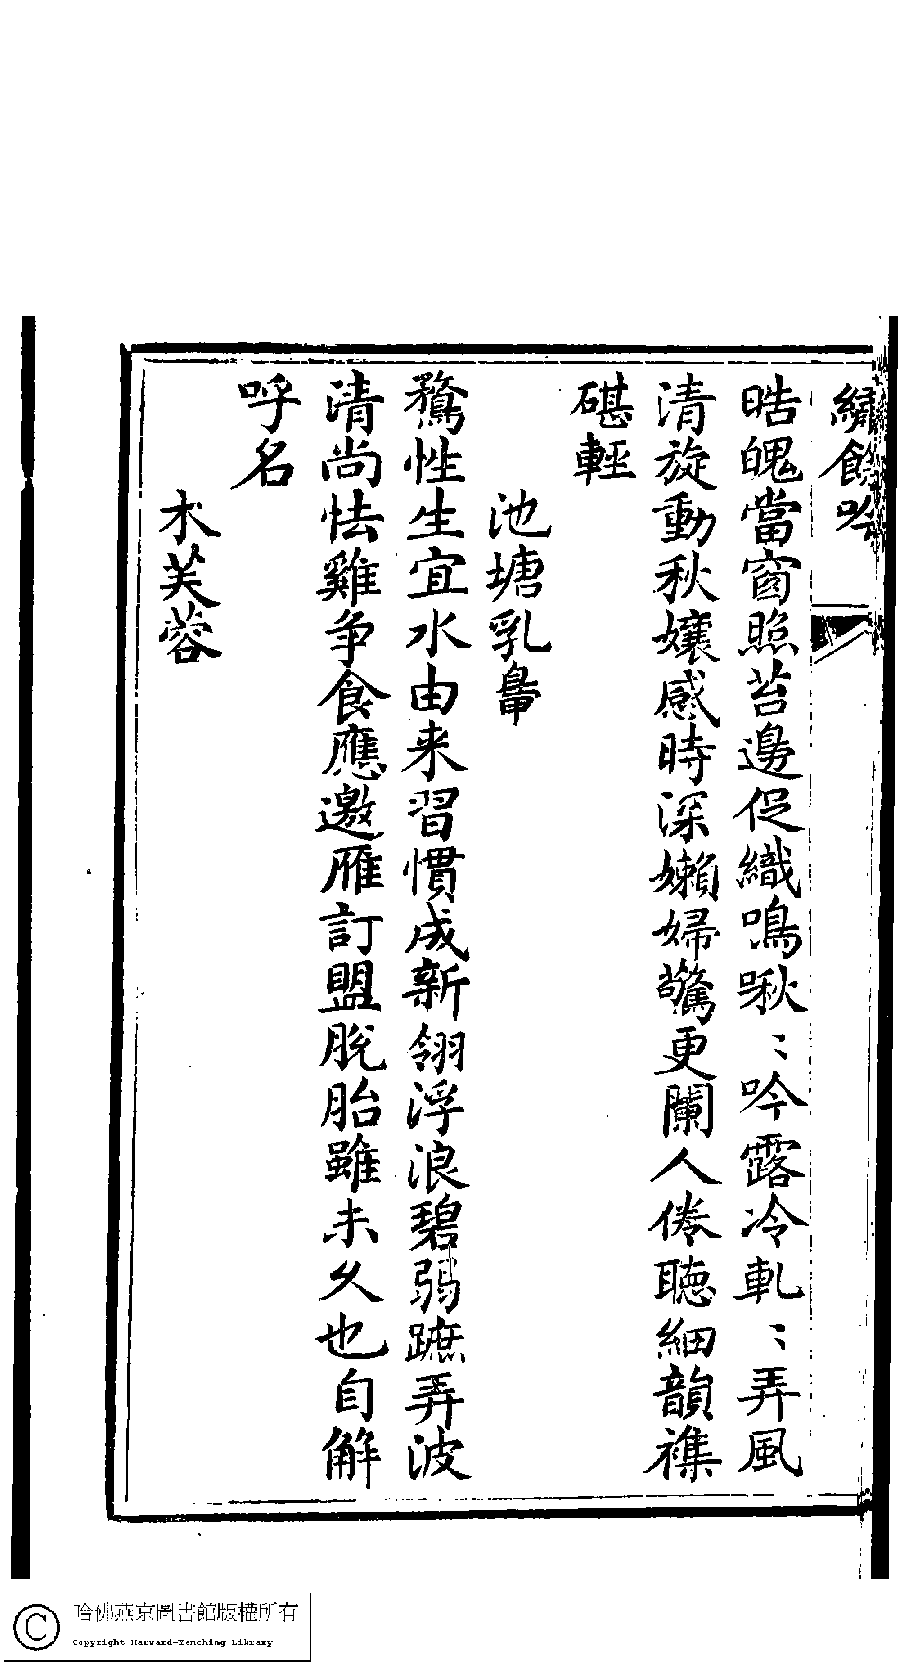 繡餘吟
晧魄當窗照苔邊促織鳴啾：吟露冷軋：弄風
清旋動秋孃感時深嬾婦驚更闌人倦聽細韻襍
碪輕
池塘乳鳧
鶩性生宜水由来習慣成新翎浮浪碧弱蹠弄波
清尚怯雞争食應邀雁訂盟脫胎雖未久也自解
呼名
木芙蓉
哈佛燕京圖書館版權所有
Copyright Harvard-Yenching Library